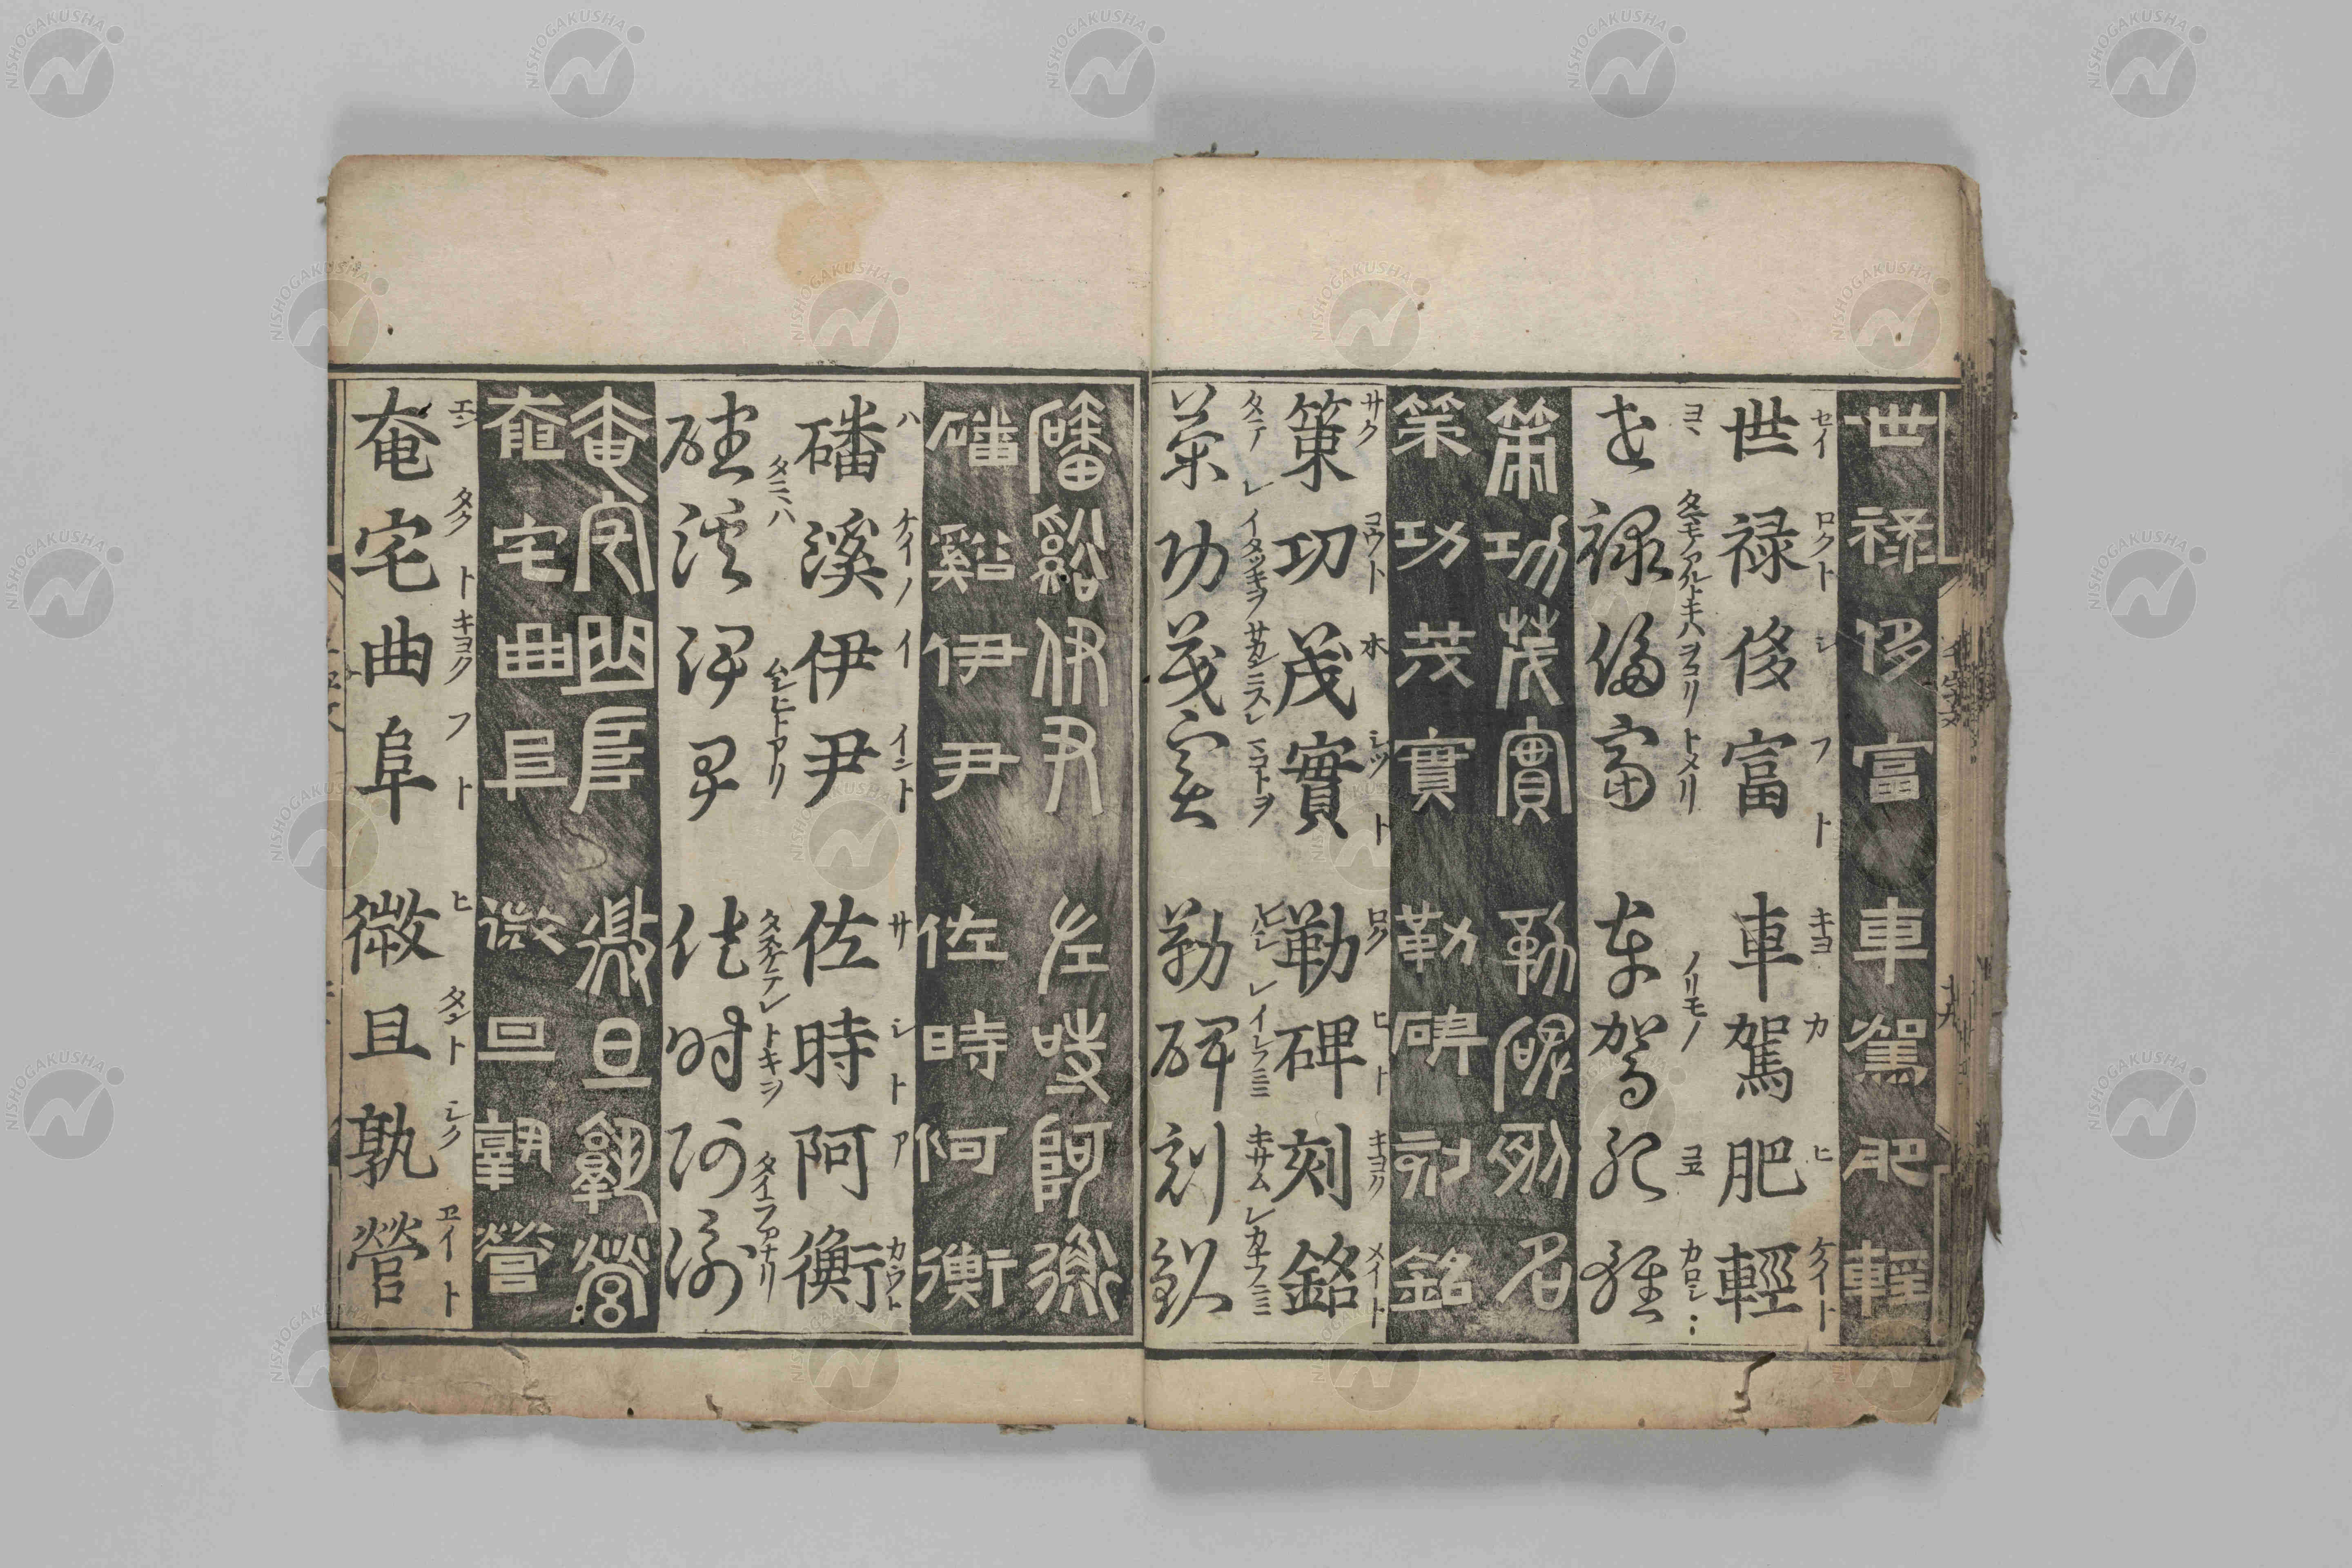 世禄侈富 車駕肥輕
セイ ロクト シ フト キヨ カ ヒ ケイト
世禄侈富 車駕肥輕
ヲコリ トメリ ノリモノ コヱ カロシ
世禄侈富 車駕肥輕
策功茂實 勒碑刻銘
策功茂實 勒碑刻銘
サク コウト ホ シツト ロク ヒト キヨク メイト
策功茂實 勒碑刻銘
タテ レ イタツキヲ サカンニスレ マコトヲ レ キサム レ
策功茂實 勒碑刻銘
磻谿伊尹 佐時阿衡
磻谿伊尹 佐時阿衡
ハ ケイノ イ イント サ シト ア カウト
磻溪伊尹 佐時阿衡
タニハ タスケテレ トキヲ タイラカナリ
磻溪伊尹 佐時阿衡
奄宅曲阜 微旦孰營
奄宅曲阜 微旦孰營
エン タクト キヨク フト ヒ タント シク ヱイト
奄宅曲阜 微且孰營
十九
NISHOGAKUSHA